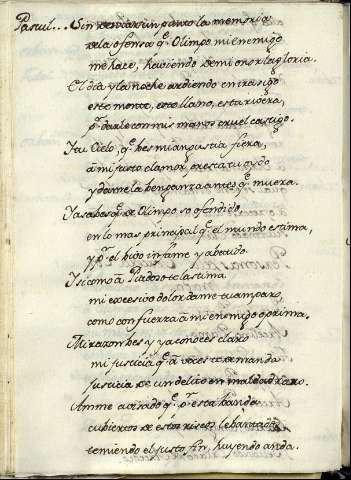 Pascul... Sin dexar un punto la memoria
de la ofensa q.e Olimpo mi enemigo
me hace, haviendo de mi onor la gloria.
El dia y la noche ardiendo en ira sigo
este monte, este llano, esta rivera,
p.r darle con mis manos cruel castigo.
Y tu Cielo, q.e bes mi angustia fiera,
â mi justo clamor presta tu oydo
y dame la benganza antes q.e muera.
Ya sabes q.e de Olimpo so ofendido
en lo mas principal q.e el mundo estima,
y p.r el bibo infame y abatido.
Y si como â Piadoso te lastima
mi excesivo dolor dame tu amparo,
como con fuerza â mi enemigo oprima.
Mi razon bes y ya conoces claro
mi justicia q.e â voces te demanda
justicia de un delito en maldad raro.
Anme avisado q.e p.r esta banda
cubierto de estos riscos le
temiendo el justo fin, huyendo anda.